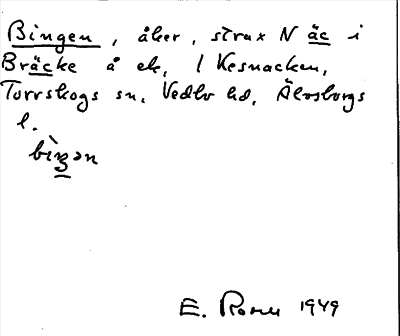 Bingen, åker, strax N äc i
Bräcke å ek, 1 Kesnacken,
Torrskogs sn, Vedbo hd, Älvsborgs
l.
bìŋən
E. Rosell 1949